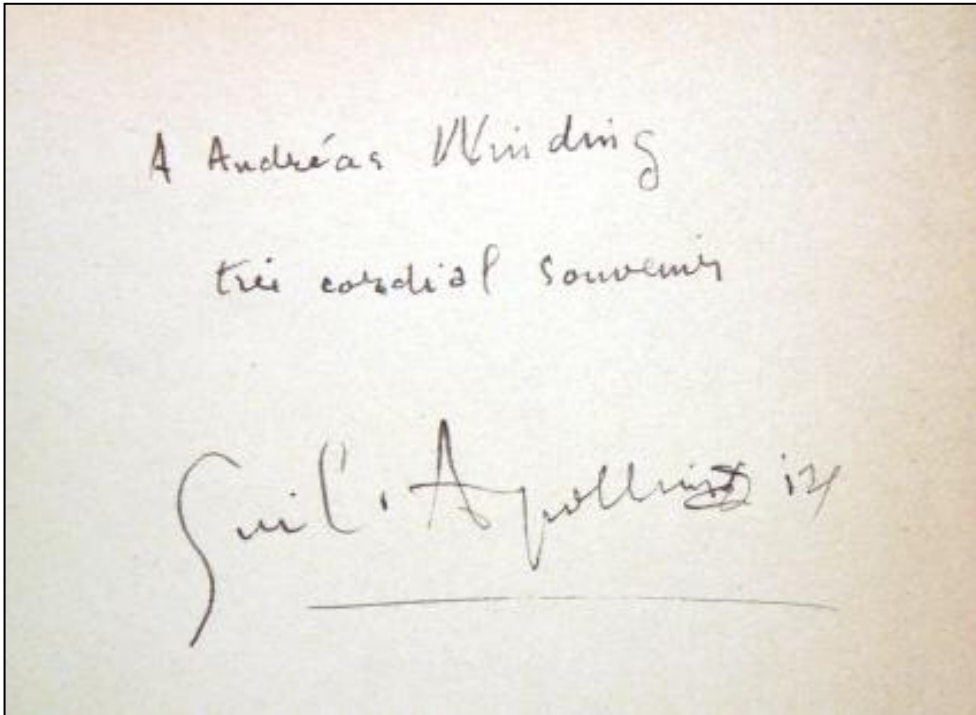 A Andréas Winding
très cordial souvenir
Guil. Apollinaire